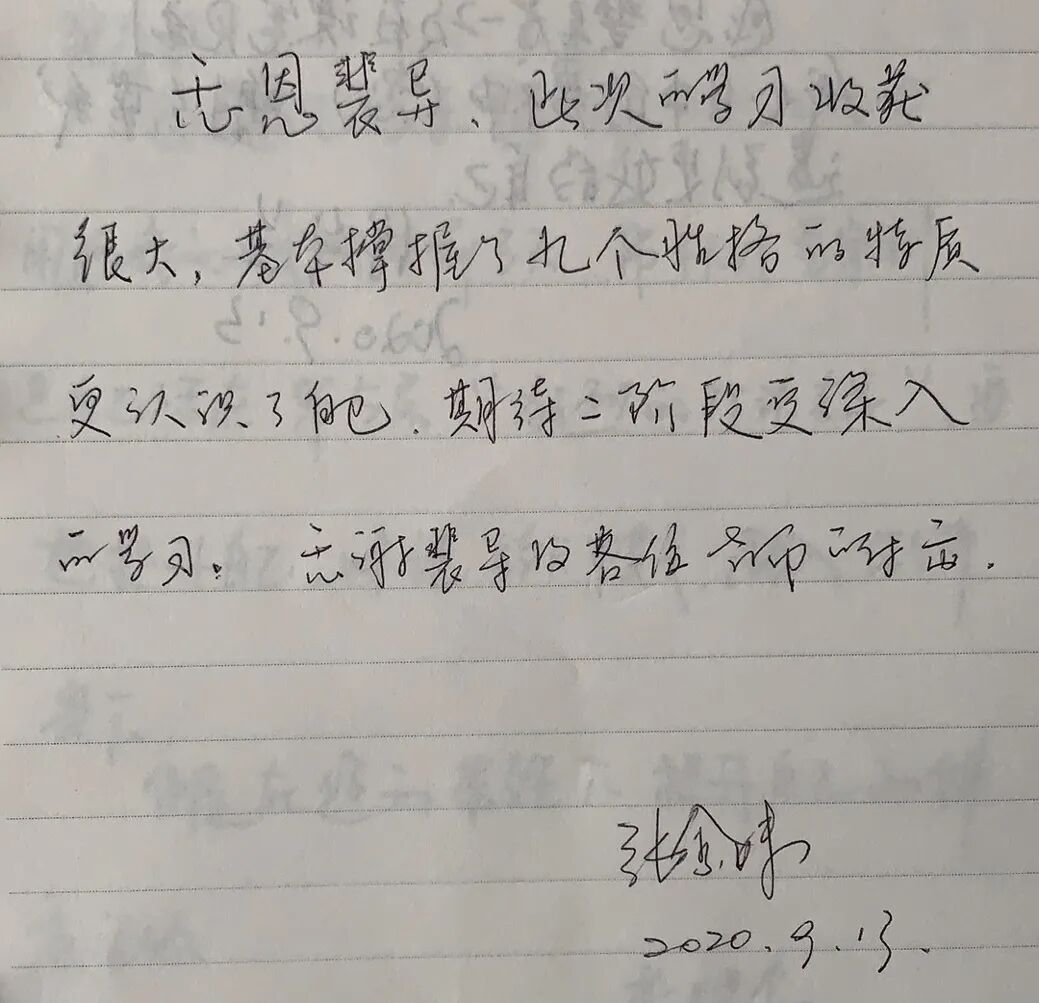 感恩裴导、此次的学习收获
很大，基本掌握了九个性格的特质
更认识了自己．期待二阶段更深入
的学习。感谢裴导及各位老师的付出．
张金
2020.9.13.